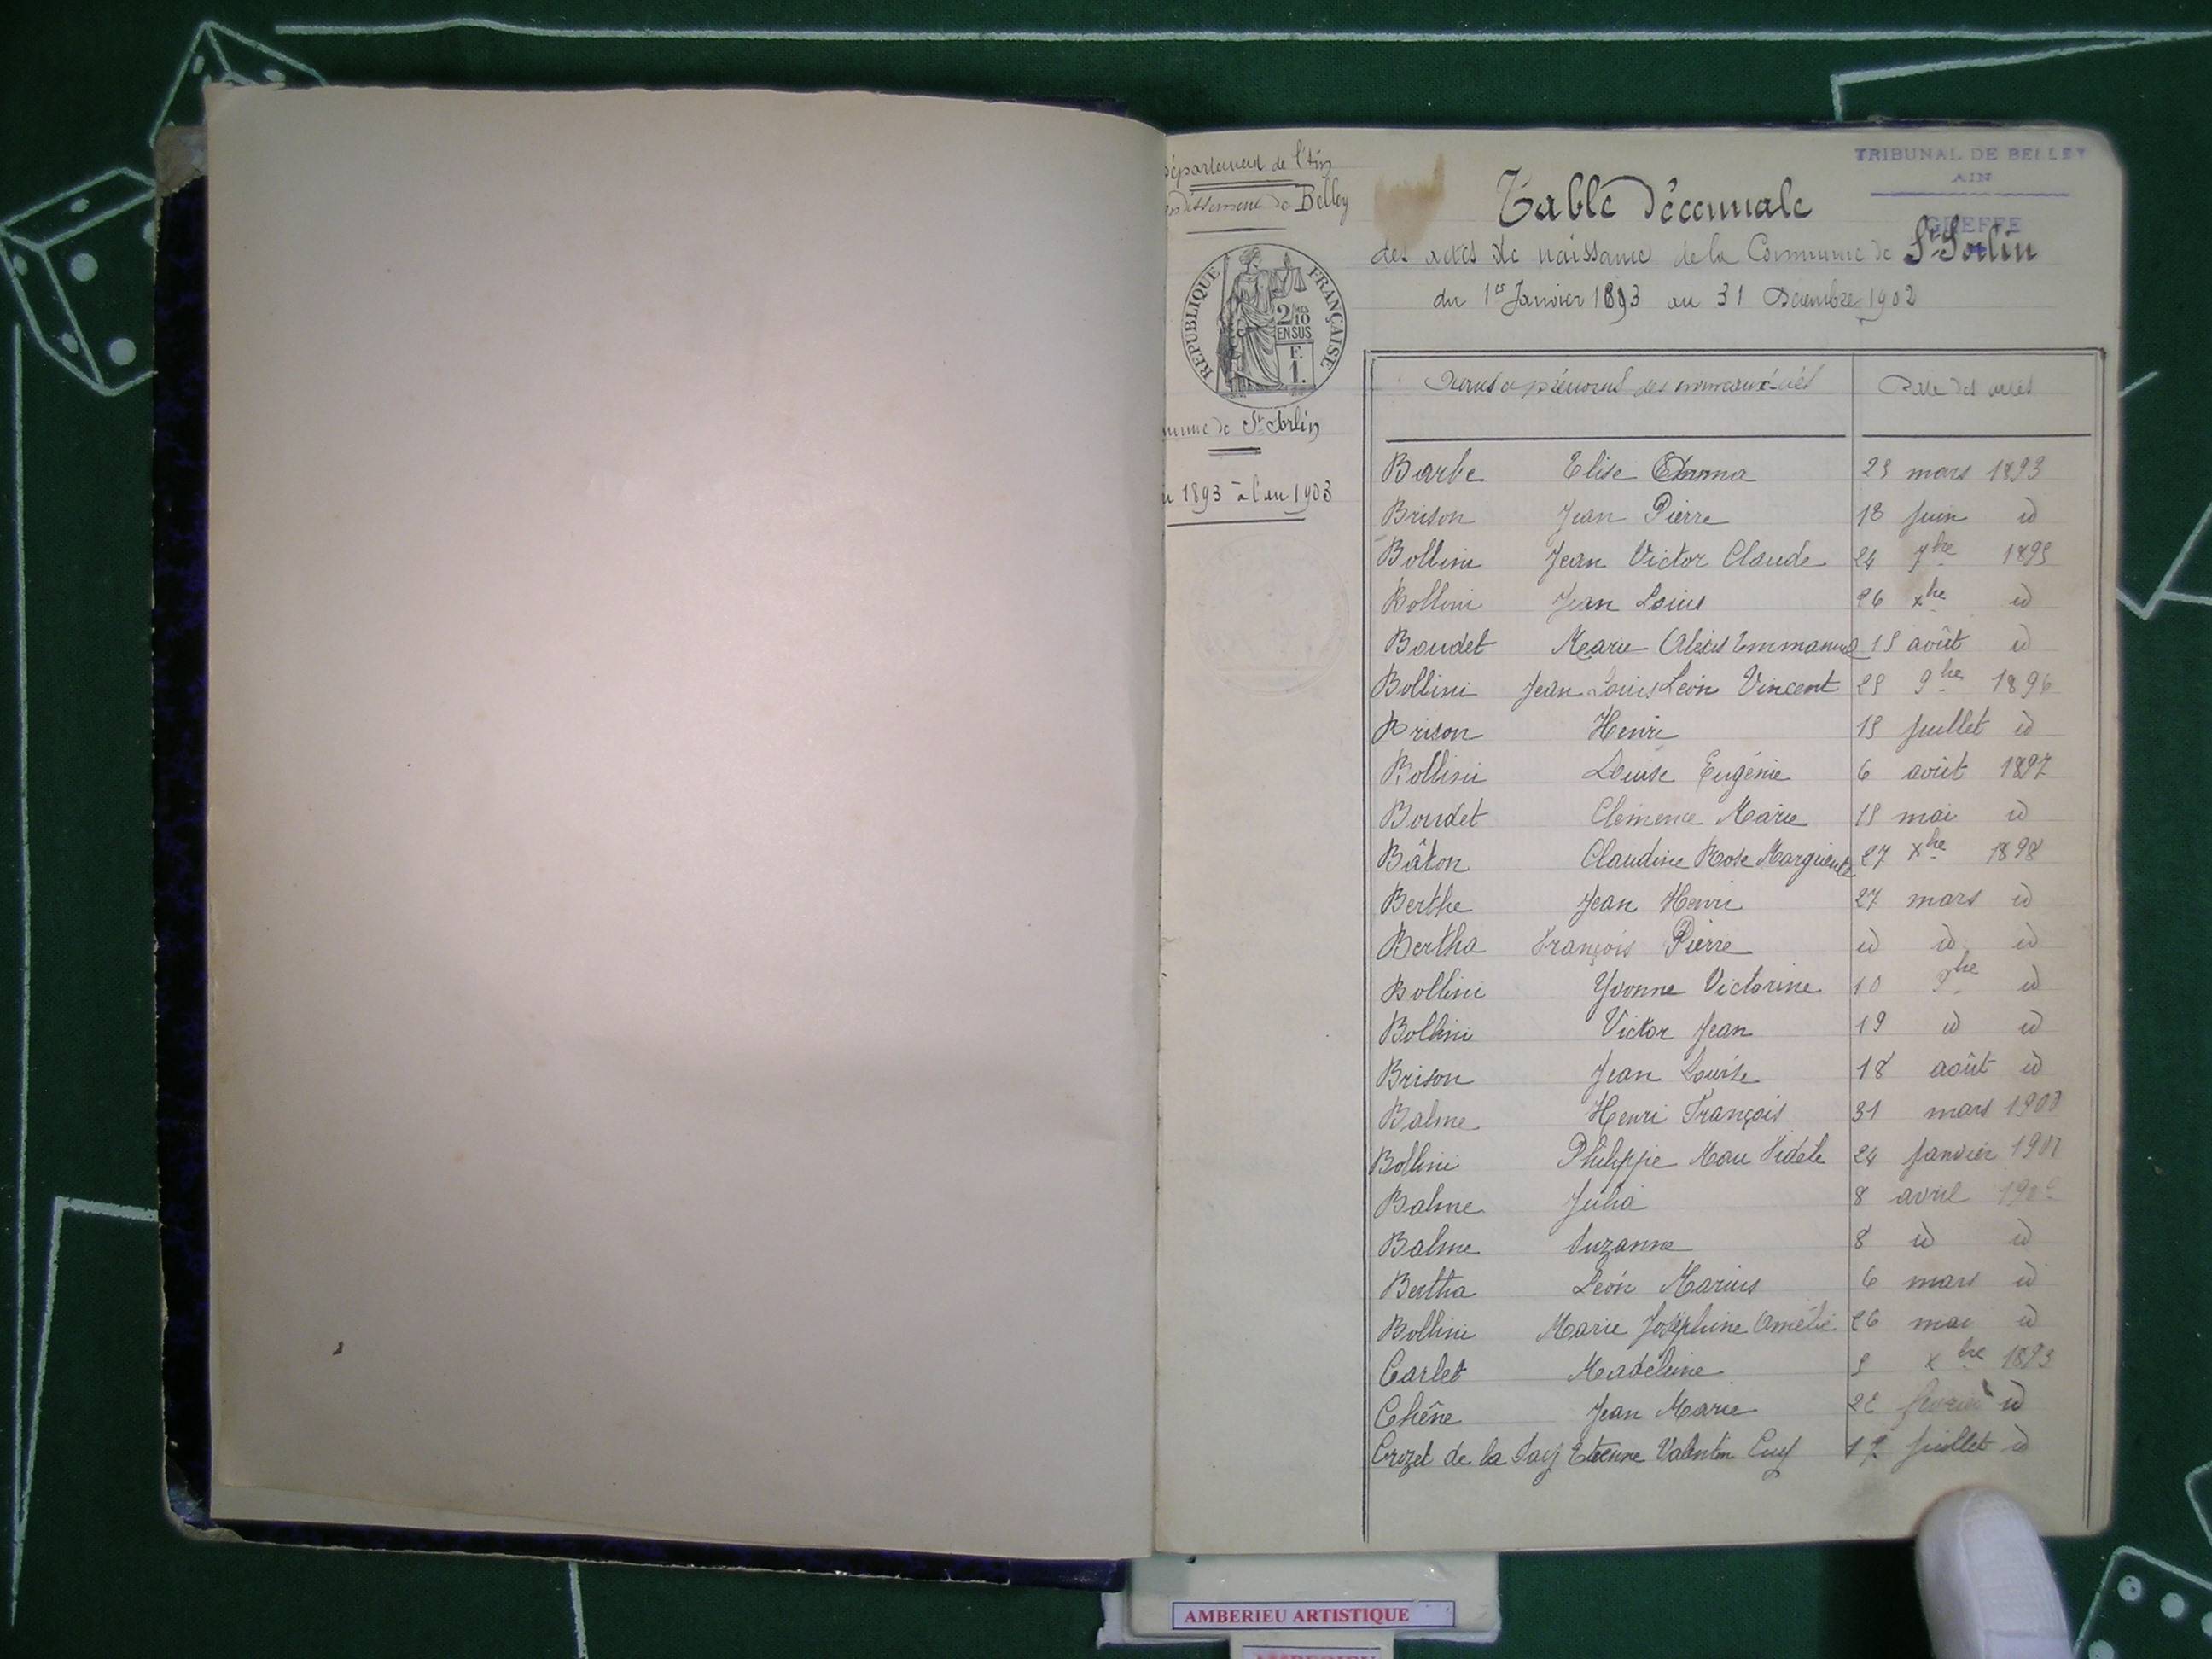 département de l'Ain
ndissement de Belley
RÉPUBLIQUE FRANÇAISE
2/10
EN SUS
F.
1.
mune de St Sorlin
1893 à l'an 1903
TRIBUNAL DE BELLEY
AIN
GREFFE
Table décennale
des actes de naissance de la Commune de St Sorlin
du 1er Janvier 1893 au 31 Décembre 1902
prénoms des nouveaux-nés Date des actes
Barbe Elise Emma 25 mars 1893
Brison Jean Pierre 18 juin id
Bollini Jean Victor Claude 24 7bre 1895
Bollini Jean Louis 26 xbre id
Boudet Marie Alexis Emmanuel 15 août id
Bollini Jean Louis Léon Vincent 25 9bre 1896
Brison Henri 15 juillet id
Bollini Louise Eugénie 6 août 1897
Boudet Clémence Marie 15 mai id
Bâton Claudine Rose Marguerite 27 xbre 1898
Berthe Jean Henri 27 mars id
Bertha François Pierre id id id
Bollini Yvonne Victorine 10 9bre id
Bollini Victor Jean 19 id id
Brison Jean Louise 18 août id
Balme Henri François 31 mars 1900
Bollini Philippe Fidele 24 janvier
Balme Julia 8 avril
Balme Suzanne 8 id id
Bertha Léon Marius 6 mars id
Bollini Marie Joséphine Amélie 26 mai id
Carlet Madeleine xbre 1893
Chêne Jean Marie février id
Crozet de la Fay Etienne Valentin juillet id
AMBERIEU ARTISTIQUE
AMBERIEU